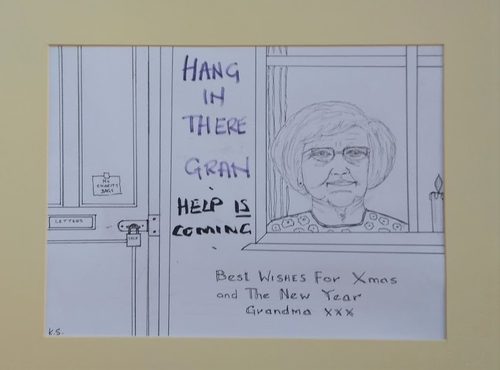 HANG
IN
THERE
GRAN
HELP IS
COMING
NO
CHARITY
BAGS
LETTERS
LOCK
Best WISHES For Xmas
and The New Year
Grandma xxx
K.S.